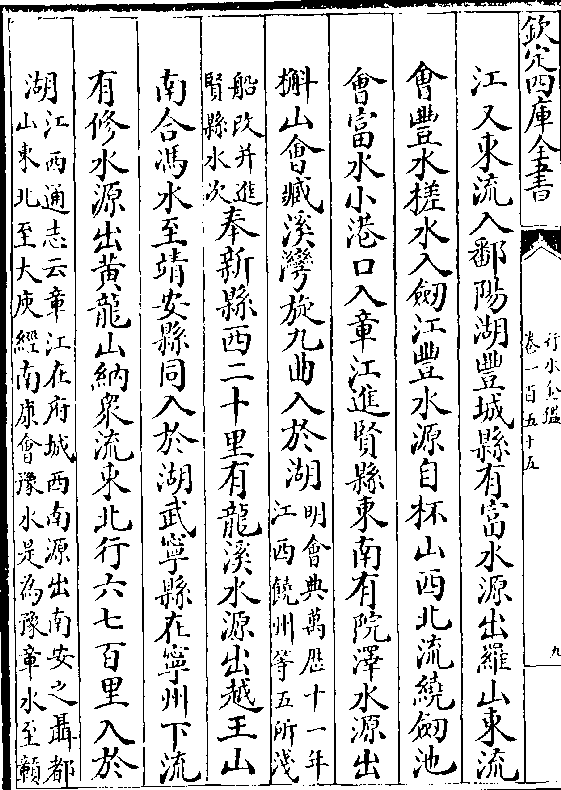 欽定四庫全書
行水金鑑
卷一百五十五
九
江又東流入鄱陽湖豐城縣有富水源出羅山東流
會豐水槎水入劒江豐水源自杯山西北流繞劒池
會富水小港口入章江進賢縣東南有院澤水源出
槲山會臧溪灣旋九曲入於湖
明會典萬厯十一年
江西饒州等五所淺
船改并進
賢縣水次
奉新縣西二十里有龍溪水源出越王山
南合馮水至靖安縣同入於湖武寧縣在寧州下流
有修水源出黄龍山納衆流東北行六七百里入於
湖
江西通志云章江在府城西南源出南安之聶都
山東北至大庾經南康會豫水是為豫章水至贛